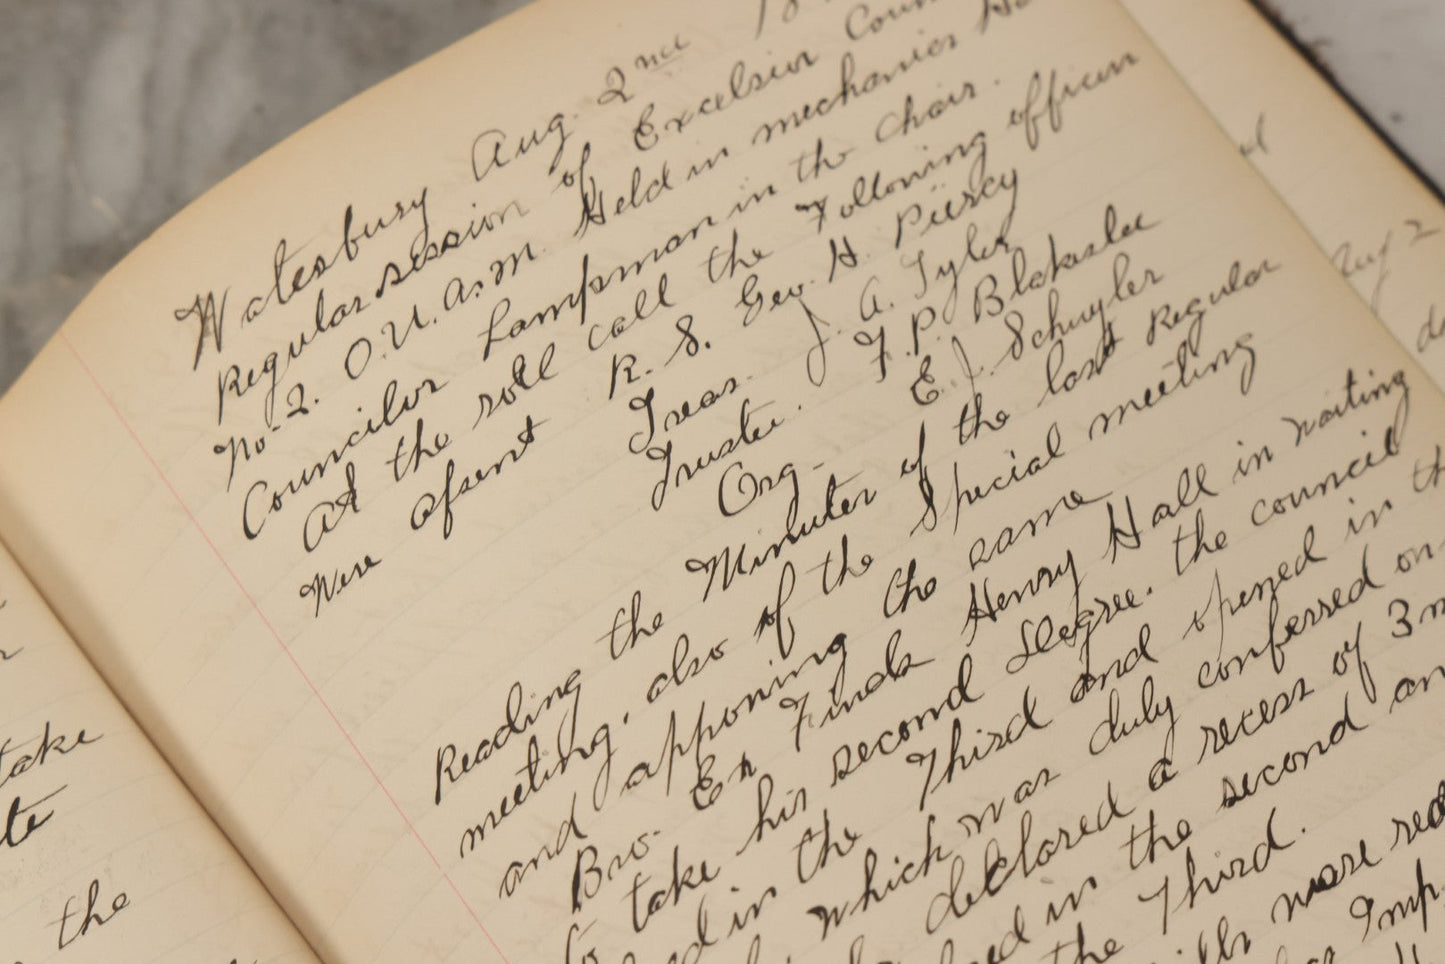 Waterbury Aug. 2nd
Regular session of Excelsior Coun
No-2. O.U.A.M. Held in mechanics Ha
Councilor Lampman in the Chair.
At the roll call the Following officers
Were absent R.S. Geo. H. Piercy
Treas. J. A. Tyler
Trustee. F. P. Blakeslee
Org- E. J. Schuyler
Reading the Minutes of the last Regular
meeting, also of the Special meeting
and apponing the same
Bro. Ex Finds Henry Hall in waiting
To take his second Degree. the council
ed in the Third and opened in th
which was duly conferred on
declared a recess of 3 m
ed in the second an
the Third.
were rea
Imp
take
te
the
Aug 2